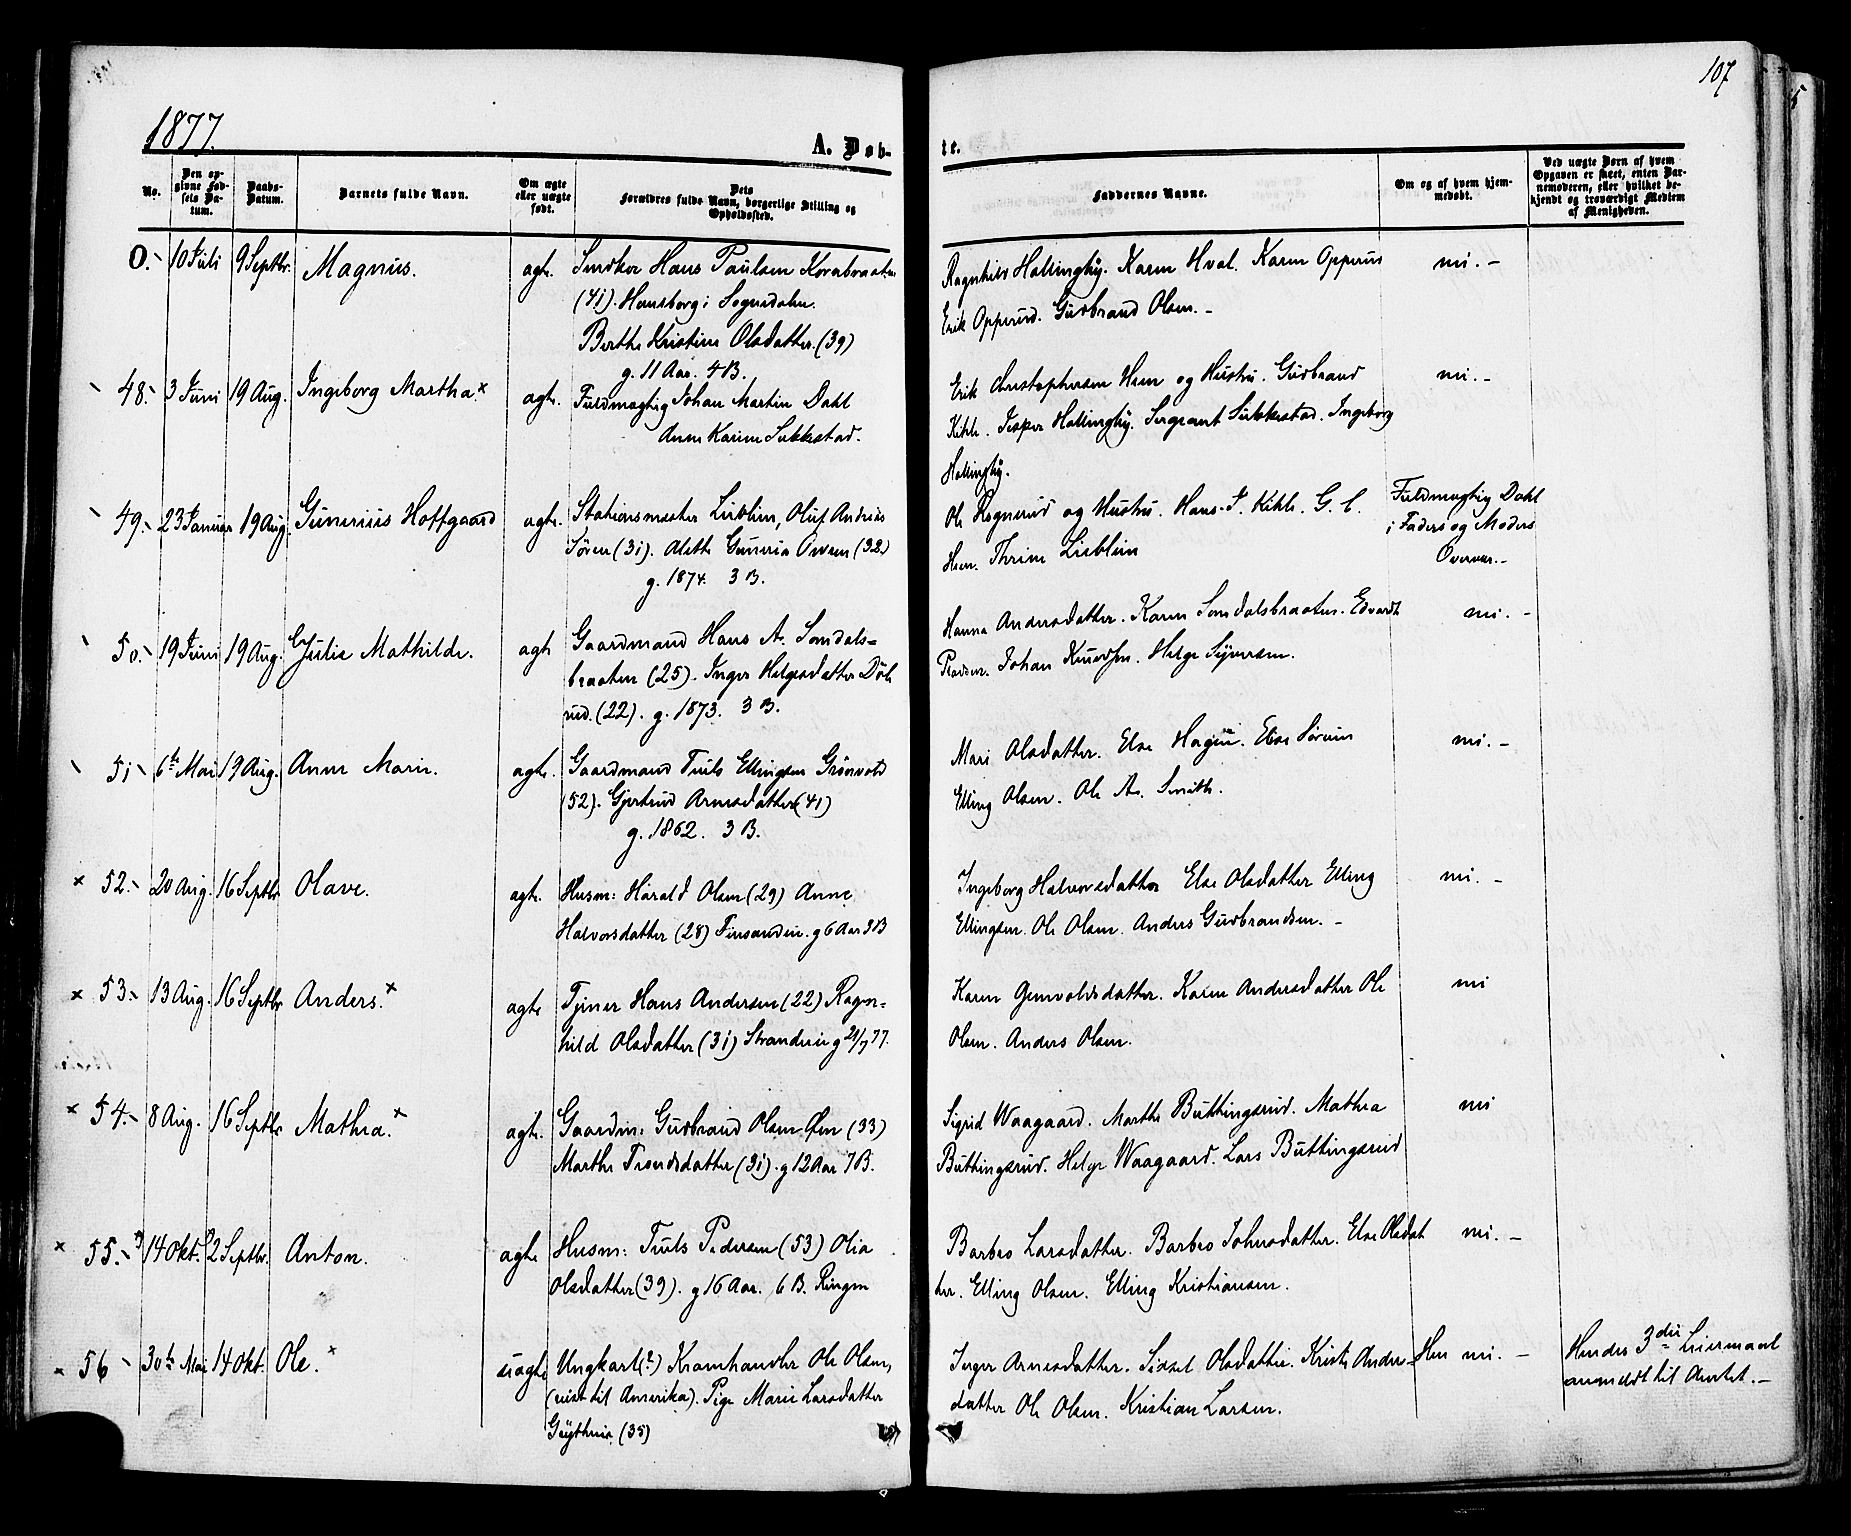 107
5
1877.
A. Døb-
te.
No.
Den op-
givne Fød-
sels Da-
tum.
Daabs-
Datum.
Barnets fulde Navn.
Om ægte
eller uægte
født.
Dets
Forældres fulde Navn, borgerlige Stilling og
Opholdssted.
Faddernes Navne.
Om og af hvem hjem-
medøbt.
Ved uægte Børn af hvem
Opgaven er skeet, enten Bar-
nemoderen, eller hvilket be-
kjendt og troværdigt Medlem
af Menigheden.
0. 10 Juli 9 Septbr. Magnus. ægte. Snedker Hans Paulsen
(41). Hensborg i Sognedalen.
Berthe Kristine Olsdatter. (39)
g. 11 Aar. 4 B.
Ragnhild Hallingby. Karen Hval. Karen Opperud
Erik Opperud. Gudbrand Olsen. -
nei. -
48. 3 Juni 19 Aug. Ingeborg Martha x ægte. Fuldmægtig Johan Martin Dahl
Anne Karine Sukkestad.
Erik Christophersen Hem og Hustru. Gudbrand
Kihle. Jesper Hallingby. Sergeant Sukkestad. Ingeborg
Hallingby.
nei. -
49. 23 Januar 19 Aug. Gunerius Hoffgaard ægte. Stationsmester Lieblein, Oluf Andreas
Sören (31). Alethe Guneria Owren (32)
g. 1874. 3 B.
Ole Rognerud og Hustru. Hans J. Kihle. G. C.
Hem. Thrine Lieblein
Fuldmægtig Dahl
i Faders og Moders
Overvær. -
50. 19 Juni 19 Aug. Julie Mathilde. ægte Gaardmand Hans A. Somdals=
braaten (25). Inger Helgesdatter Döle
rud. (22). g. 1873. 3 B.
Hanna Andersdatter. Karen Somdalsbraaten. Edvardt
Johan Knudsen. Helge Syversen.
nei. -
51 6te Mai 19 Aug. Anne Marie. ægte. Gaardmand Truls Ellingsen Grönvold
(52). Gjertrud Arnesdatter (41)
g. 1862. 3 B.
Mari Olsdatter. Else Hagen. Else Sörum
Elling Olsen. Ole A. Smith.
nei. -
x 52. 20 Aug. 16 Septbr Olave. ægte. Husm: Harald Olsen (29) Anne
Halvorsdatter (28) Finsandeie. g 6 Aar 3 B
Ingeborg Halvorsdatter Else Olsdatter Elling
Ellingsen. Ole Olsen. Anders Gudbrandsen. -
nei. -
x 53. 13 Aug. 16 Septbr Anders. x ægte Tjener Hans Andersen (22) Ragn=
hild Olsdatter (31) Strandeie g 21/7 77.
Karen Gunvoldsdatter. Karen Andersdatter Ole
Olsen. Anders Olsen.
nei
x 54. 8 Aug. 16 Septbr Mathea. x ægte. Gaardm: Gudbrand Olsen Öen (33)
Marthe Trondsdatter (31). g 12 Aar 7 B.
Sigrid Waagaard. Marthe Buttingsrud. Mathea
Buttingsrud. Helge Waagaard. Lars Buttingsrud
nei
x 55. 14 Okt. 2 Septbr. Anton. ægte Husm: Truls Pedersen (53) Olia
Olsdatter (39). g 16 Aar. 6 B. Ringen
Barbro Larsdatter. Barbro Johnsdatter. Else Olsdat
ter. Elling Olsen. Elling Kristiansen.
nei. -
x 56 30te Mai 14 Okt. Ole. x uægte Ungkarl (?) Kramhandler Ole Olsen,
(reist til Amerika). Pige Marie Larsdatter
(35)
Inger Arnesdatter. Sidsel Olsdatter. Kristi Anders-
datter Ole Olsen. Kristian Larsen.
nei. -
Hendes 3die Leiermaal
anmeldt til Amtet. -